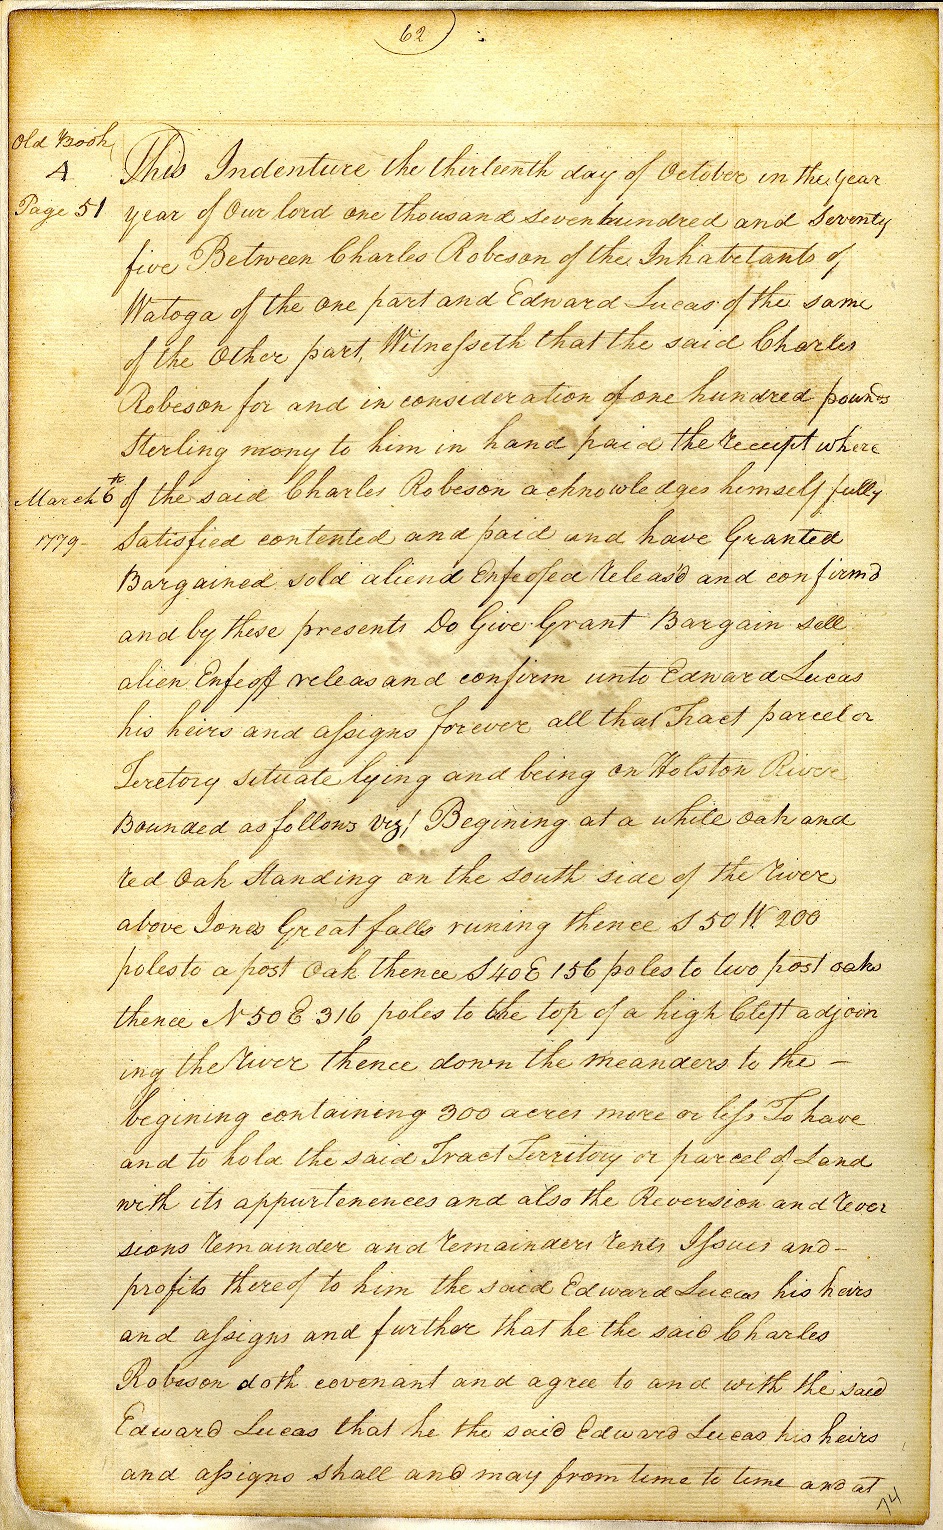 62
Old Book
A
Page 51
This Indenture the thirteenth day of October in the year
year of Our lord one thousand seven hundred and seventy
five Between Charles Robeson of the Inhabetants of
Watoga of the one part and Edward Lucas of the same
of the Other part, Witnesseth that the said Charles
Robeson for and in consideration of one hundred pounds
Sterling mony to him in hand paid the receipt where
March 6th
of the said Charles Robeson acknowledges himself fully
1779-
Satisfied contented and paid and have Granted
Bargained sold aliend Enfeofed releas'd and confirmd
and by these presents Do Give Grant Bargain sell
alien Enfeoff releas and confirm unto Edward Lucas
his heirs and assigns forever all that Tract parcel or
Teretory situate lying and being on Holston River
Bounded as follows viz! Begining at a white oak and
red Oak Standing on the south side of the river
above Jones Great falls runing thence S 50 W 200
poles to a post Oak thence S 40 E 156 poles to two post oaks
thence N 50 E 316 poles to the top of a high Cleft adjoin
ing the river thence down the meanders to the –
begining containing 300 acres more or less To have
and to hold the said Tract Territory or parcel of Land
with its appurtenences and also the Reversion and rever
sions remainder and remainders rents Issues and –
profits thereof to him the said Edward Lucas his heirs
and assigns and further that he the said Charles
Robeson doth covenant and agree to and with the said
Edward Lucas that he the said Edward Lucas his heirs
and assigns shall and may from time to time and at
74